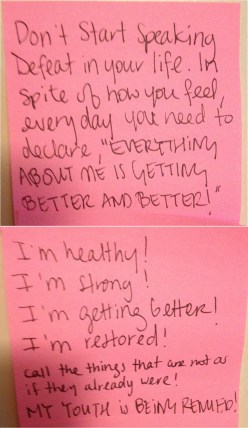 Don't Start Speaking
Defeat in your life. In
Spite of how you feel,
everyday you need to
declare, "EVERYTHING
ABOUT ME IS GETTING
BETTER AND BETTER!"
I'm healthy!
I'm strong!
I'm getting better!
I'm restored!
Call the things that are not as
if they already were!
MY YOUTH is BEING RENEWED!